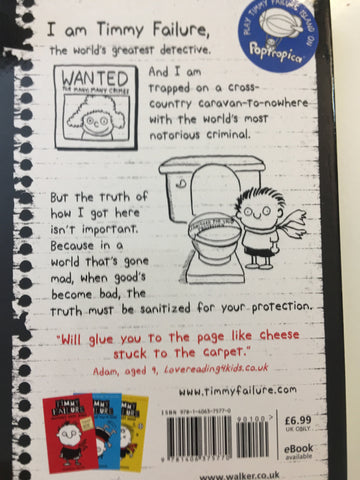 I am Timmy Failure,
the world's greatest detective.
PLAY TIMMY FAILURE ISLAND ON
Poptropica
WANTED
FOR MANY, MANY CRIMES
And I am
trapped on a cross-
country caravan-to-nowhere
with the world's most
notorious criminal.
But the truth of
how I got here
isn't important.
Because in a
world that's gone
mad, when good's
become bad, the
truth must be sanitized for your protection.
"Will glue you to the page like cheese
stuck to the carpet."
Adam, aged 9, Lovereading4kids.co.uk
www.timmyfailure.com
TIMMY
FAILURE
TIMMY
FAILURE
TIMMY
FAILURE
ISBN 978-1-4063-7577-0
90100>
9 781406 375770
£6.99
UK ONLY
eBook
available
www.walker.co.uk